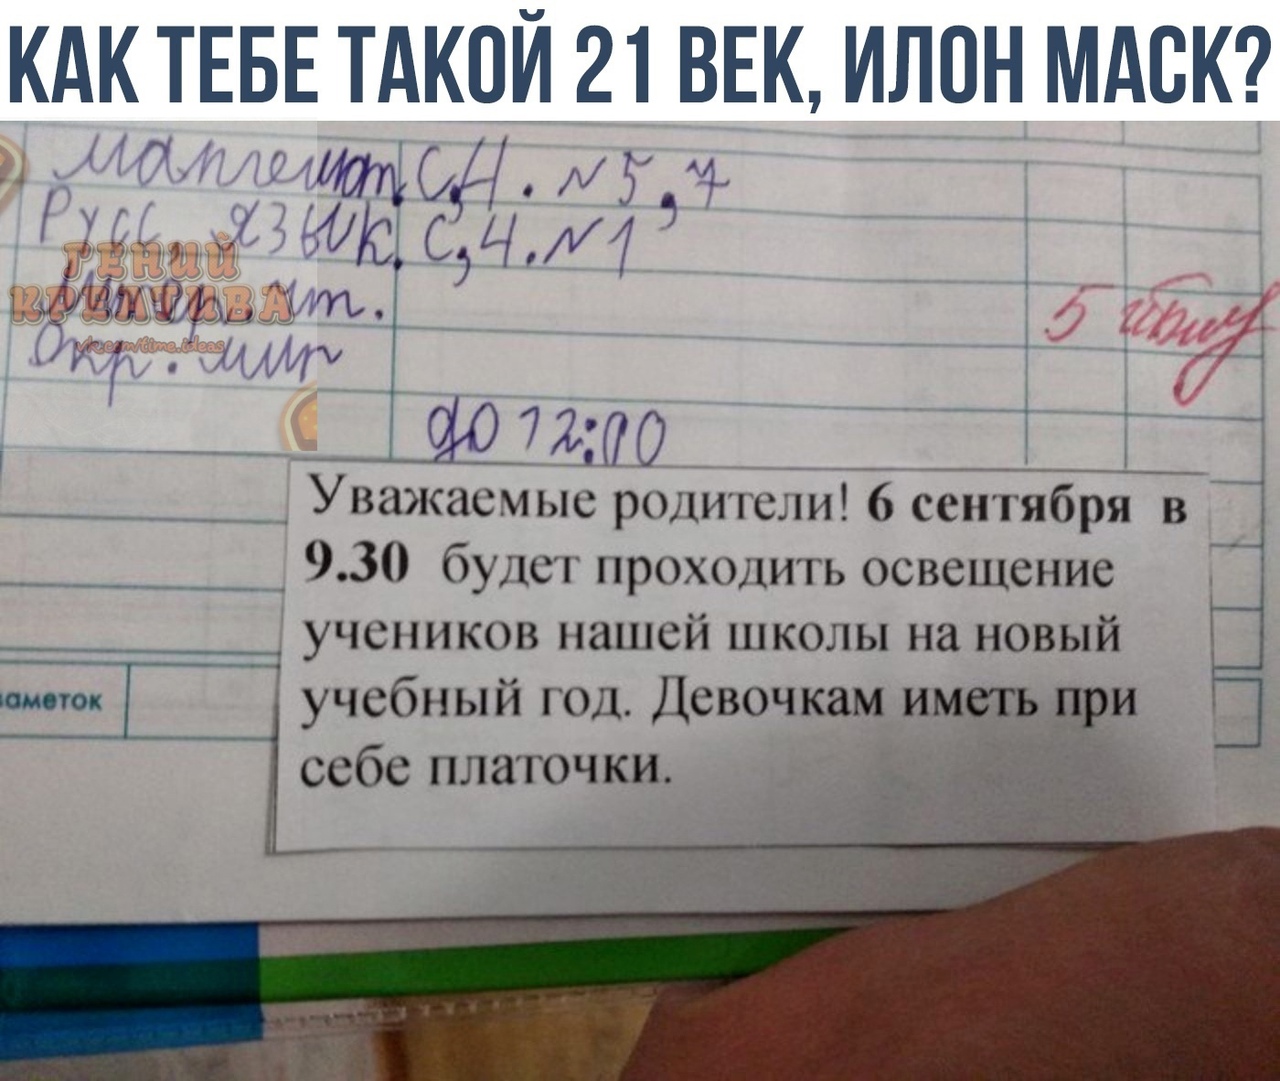 КАК ТЕБЕ ТАКОЙ 21 ВЕК, ИЛОН МАСК?
Математ. С,4. №5,7
Русс, язык. С,4.№1
ГЕНИЙ
КРЕАТИВА
vk.com/time.ideas
Окр. мир
5
до 12:00
Уважаемые родители! 6 сентября в
9.30 будет проходить освещение
учеников нашей школы на новый
учебный год. Девочкам иметь при
себе платочки.
заметок